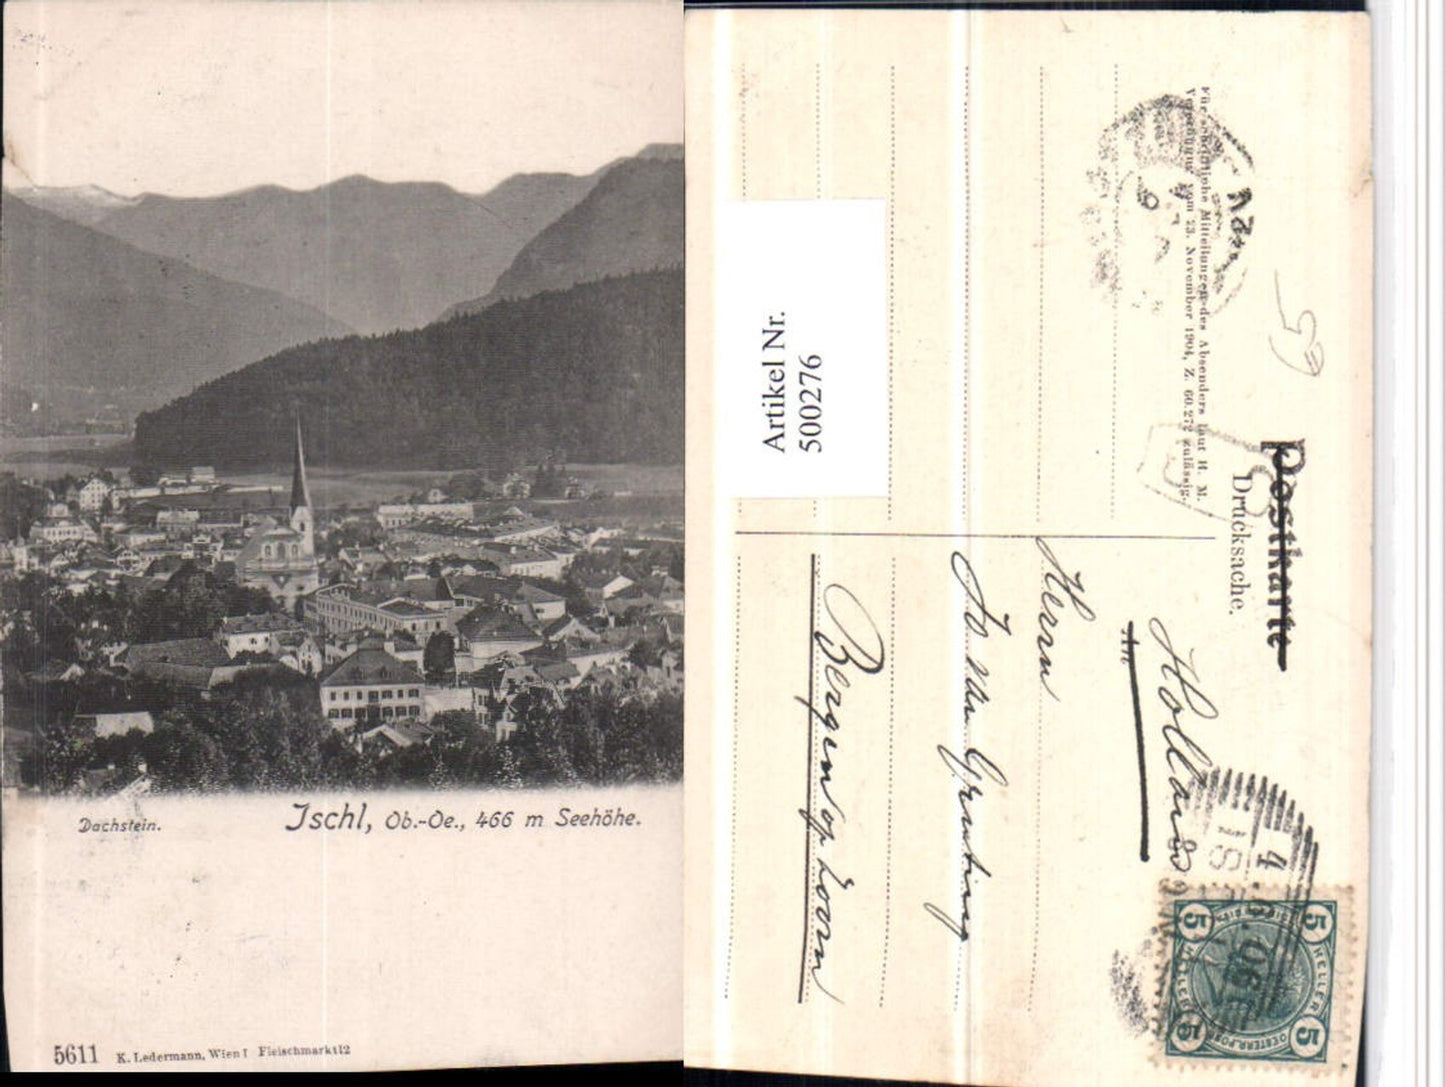 Dachstein.
Ischl, Ob.-Oe., 466 m Seehöhe.
5611 K. Ledermann, Wien I Fleischmarkt 12
Artikel Nr.
500276
Postkarte
Drucksache.
Für schriftliche Mitteilungen des Absenders laut H. M.
Verfügung vom 23. November 1904, Z. 60.272 zulässig.
65
Holland
An
Herrn
Bergen op Zoom
4.6.06
5 5
HELLER HELLER
5 5